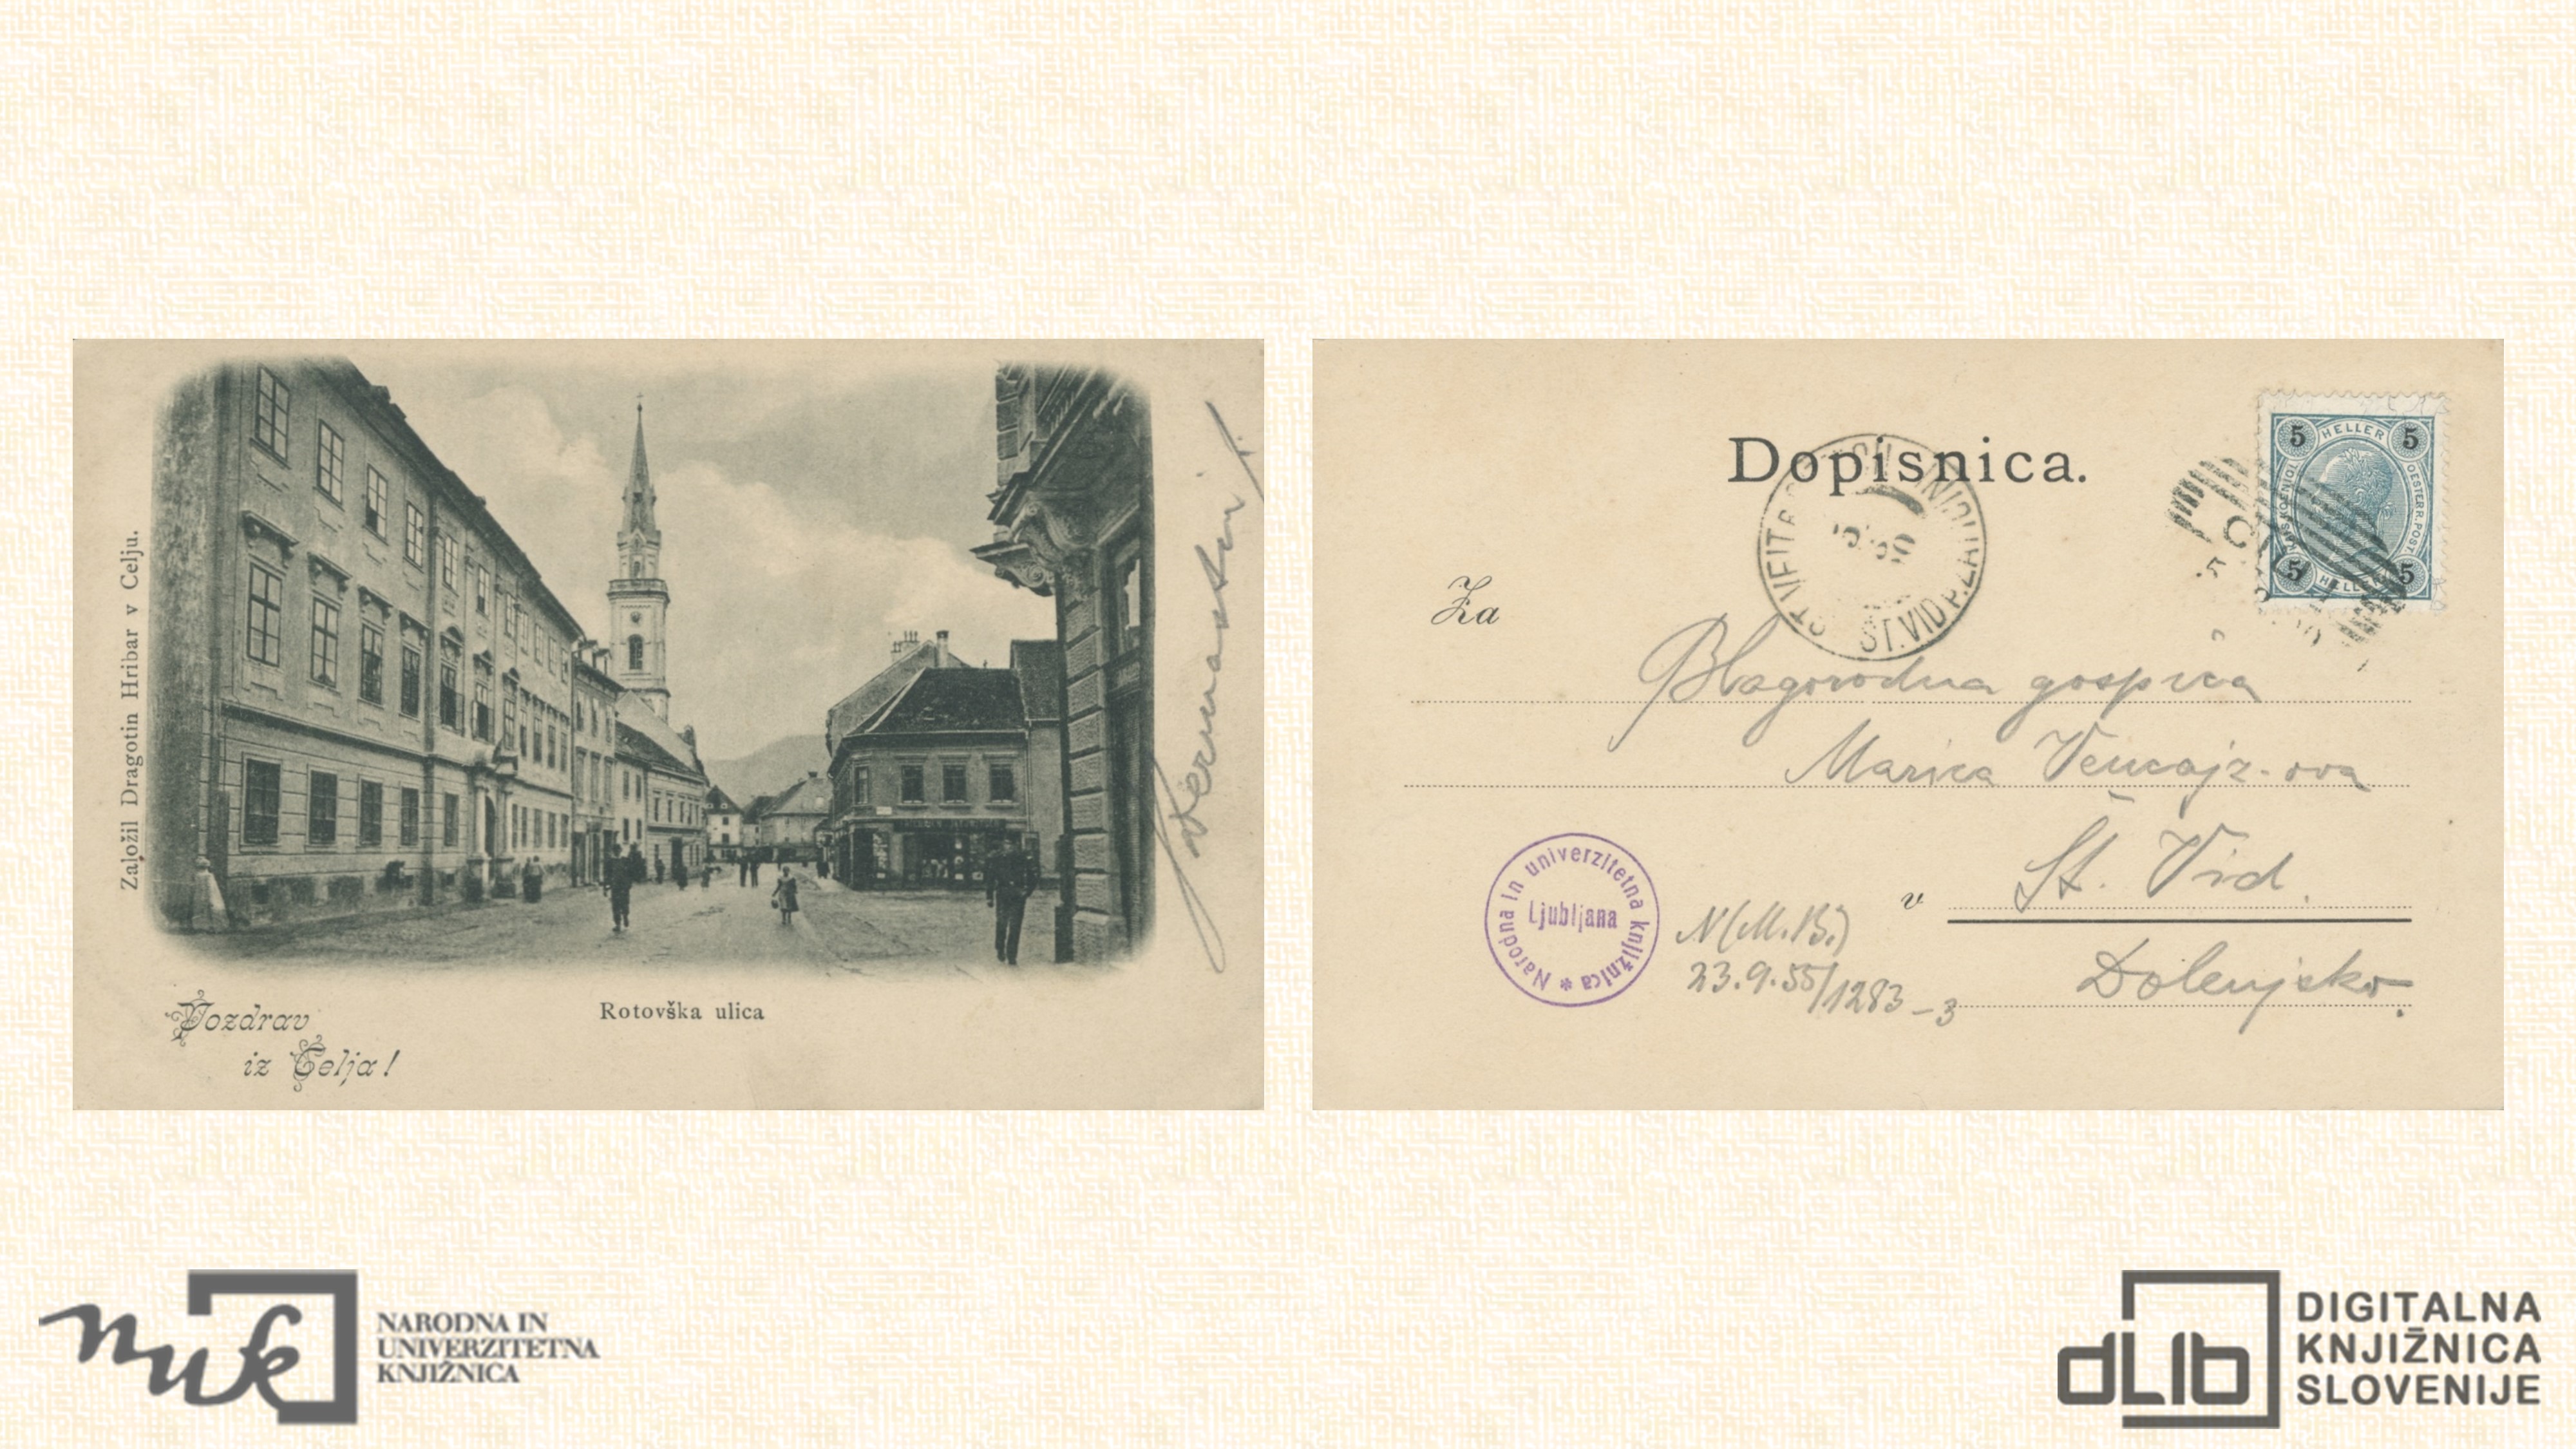 Založil Dragotin Hribar v Celju.
Pozdrav
iz Celja!
Rotovška ulica
Dopisnica.
ST. VID P. ZATI
5 HELLER 5
OESTERR. POST.
5 HELLER 5
Za
Blagorodna gospica
Marica Vencajz-ova
v St. Vid.
Dolenjsko.
Narodna in univerzitetna knjižnica *
Ljubljana
N(M.B.)
23.9.55/1283-3
nuk
NARODNA IN
UNIVERZITETNA
KNJIŽNICA
dLib
DIGITALNA
KNJIŽNICA
SLOVENIJE